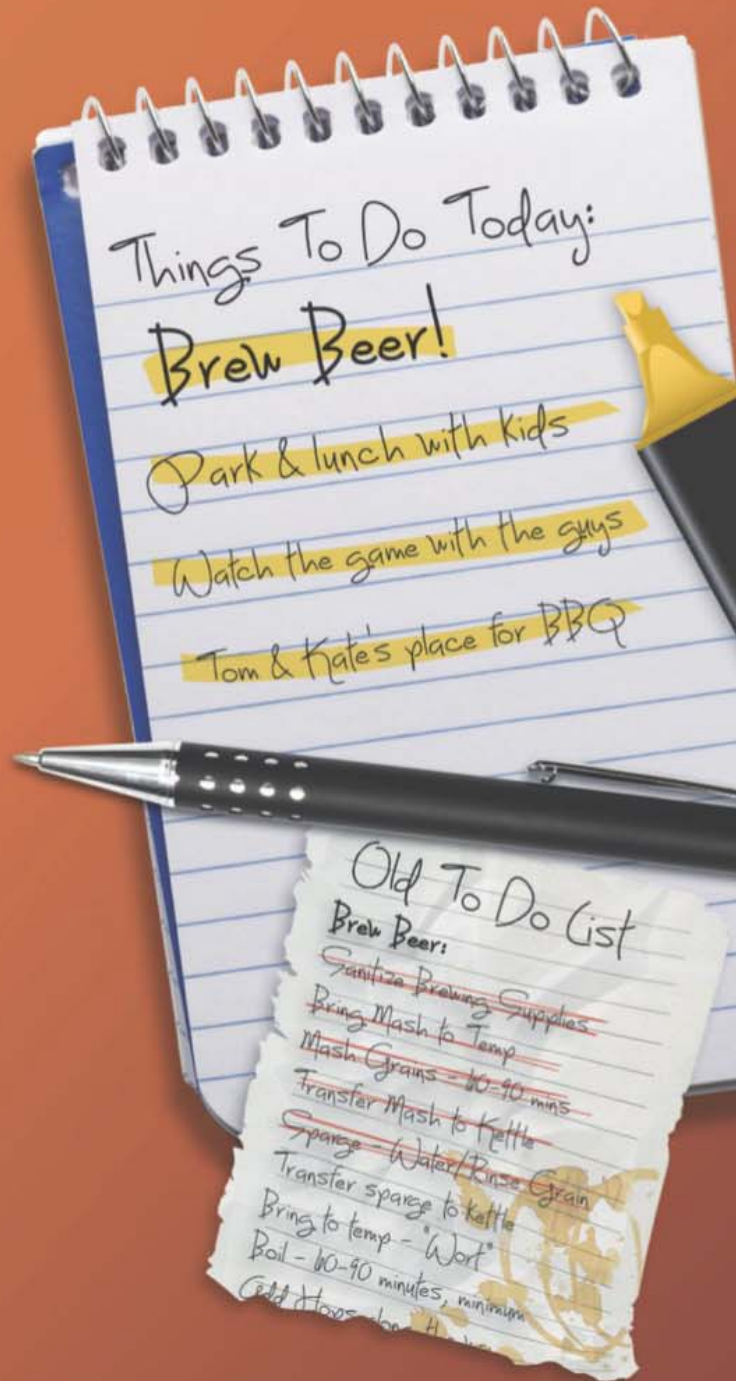 Things To Do Today:
Brew Beer!
Park & lunch with kids
Watch the game with the guys
Tom & Kate's place for BBQ
Old To Do List
Brew Beer:
Sanitize Brewing Supplies
Bring Mash to Temp
Mash Grains - 60-90 mins
Transfer Mash to Kettle
Sparge - Water/Rinse Grain
Transfer sparge to kettle
Bring to temp - "Wort"
Boil - 60-90 minutes, minimum
Add Hops